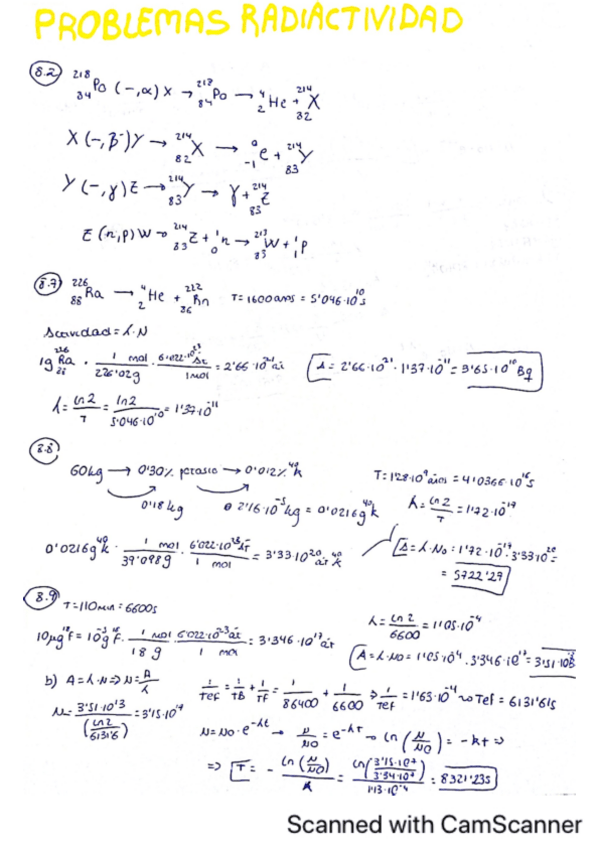 PROBLEMAS RADIACTIVIDAD
8.2 ²¹⁸₈₄Po (-,α) X → ²¹⁸₈₄Po → ⁴₂He + ²¹⁴₈₂X
X (-,β⁻) Y → ²¹⁴₈₂X → ⁰₋₁e + ²¹⁴₈₃Y
Y (-,γ) Z → ²¹⁴₈₃Y → γ + ²¹⁴₈₃Z
Z (n,p) W → ²¹⁴₈₃Z + ¹₀n → ²¹³₈₃W + ¹₁p
8.7 ²²⁶₈₈Ra → ⁴₂He + ²²²₈₆Rn T = 1600 años = 5'046·10¹⁰ s
Actividad = λ·N
1g ²²⁶Ra · 1 mol / 226'02g · 6'022·10²³ at / 1 mol = 2'66·10²¹ at A = 2'66·10²¹ · 1'37·10⁻¹¹ = 3'65·10¹⁰ Bq
λ = ln 2 / T = ln 2 / 5'046·10¹⁰ = 1'37·10⁻¹¹
8.8
60 kg → 0'30% potasio → 0'012% ⁴⁰K T = 1'28·10⁹ años = 4'0366·10¹⁶ s
0'18 kg 2'16·10⁻⁵ kg = 0'0216 g ⁴⁰K λ = ln 2 / T = 1'72·10⁻¹⁷
0'0216 g ⁴⁰K · 1 mol / 39'0989 · 6'022·10²³ at / 1 mol = 3'33·10²⁰ at ⁴⁰K A = λ·N₀ = 1'72·10⁻¹⁷ · 3'33·10²⁰ =
= 5722'29
8.9
T = 110 min = 6600 s λ = ln 2 / 6600 = 1'05·10⁻⁴
10 µg ¹⁸F = 10⁻⁵ g ¹⁸F · 1 mol / 18 g · 6'022·10²³ at / 1 mol = 3'346·10¹⁷ at A = λ·N₀ = 1'05·10⁻⁴ · 3'346·10¹⁷ = 3'51·10¹³
b) A = λ·N → N = A / λ 1/Tef = 1/TB + 1/TF = 1/86400 + 1/6600 ⇒ 1/Tef = 1'63·10⁻⁴ → Tef = 6131'61 s
N = 3'51·10¹³ / (ln 2 / 6131'6) = 3'15·10¹⁷
N = N₀·e^(-λt) → N/N₀ = e^(-λt) → ln (N/N₀) = -λt ⇒
⇒ T = - ln (N/N₀) / λ = = 8321'23 s
Scanned with CamScanner